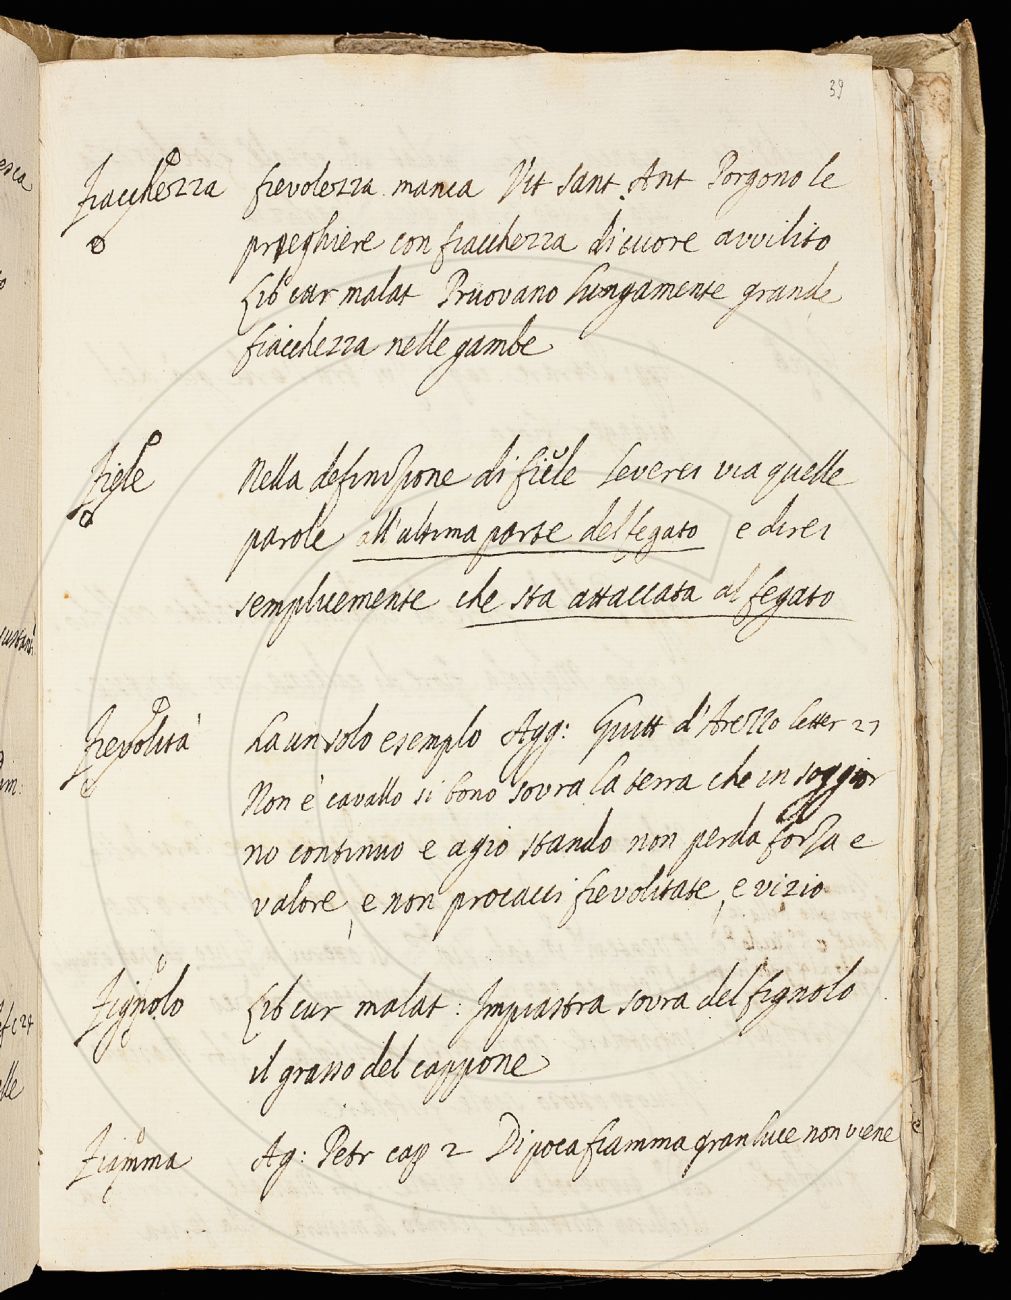 39
Fiacchezza fievolezza manca Vit sant Ant Porgono le
preghiere con fiacchezza di cuore avvilito
Lib cur malat Pruovano lungamente grande
fiacchezza nelle gambe
Fiele Nella definizione di fiele leverei via quelle
parole all'ultima parte del fegato e direi
semplicemente che sta attaccata al fegato
Fievolità Ha un solo esemplo Agg: Guitt d'Arezzo letter 21
Non è cavallo si bono sovra la terra che in soggior
no continuo e agio stando non perda forza e
valore, e non procacci fievolitate, e vizio
Fignolo Lib cur malat: Impiastra sovra del fignolo
il grasso del cappone
Fiamma Ag: Petr cap 2 Di poca fiamma gran luce non viene